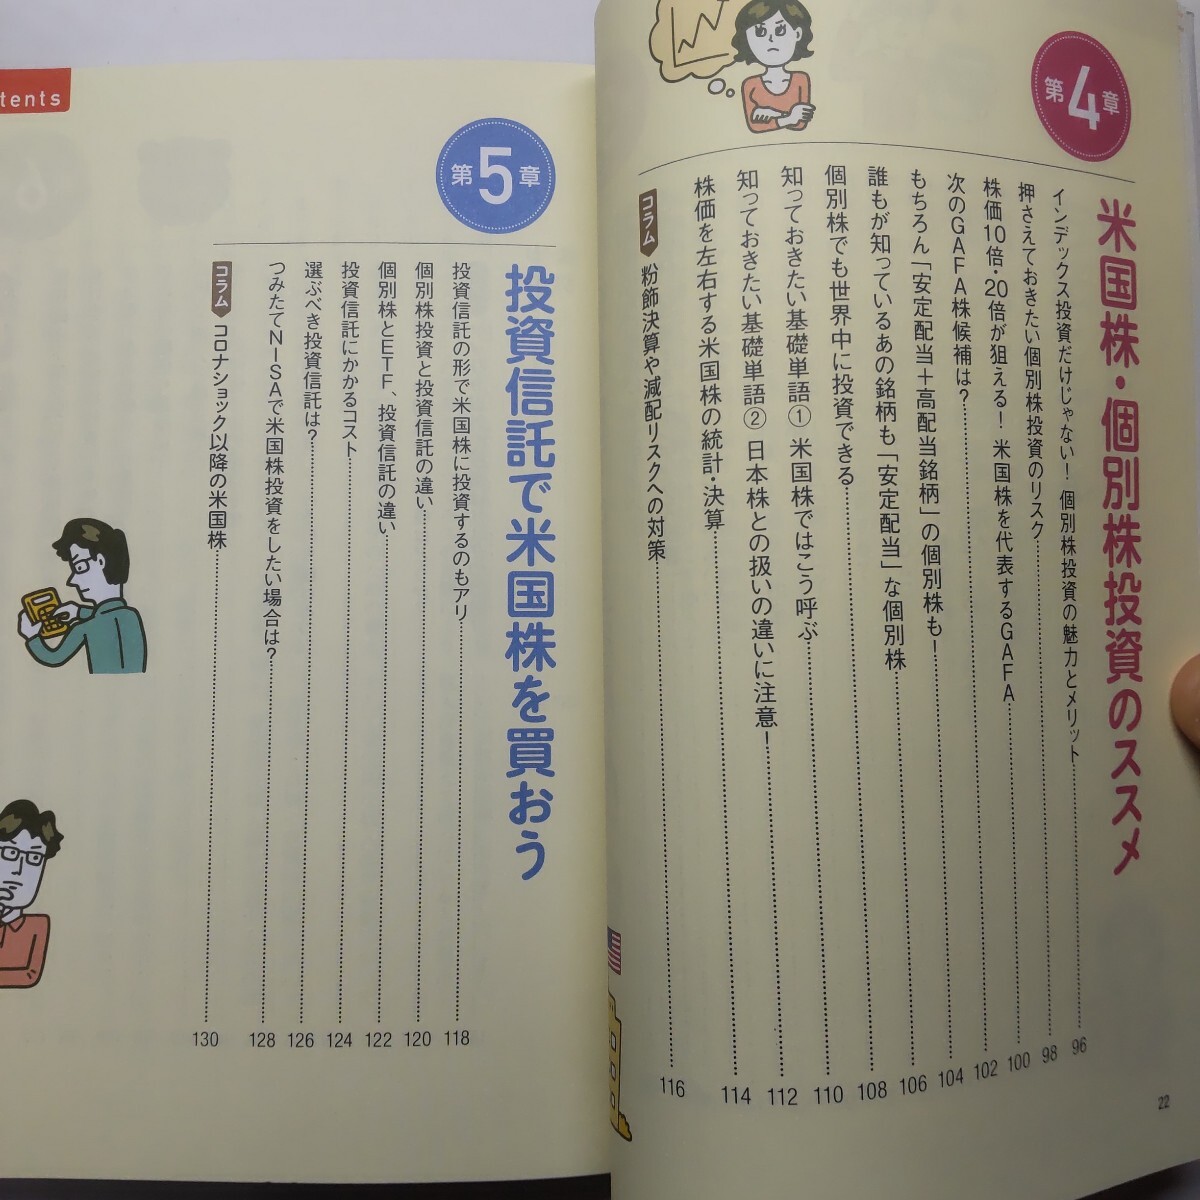 第4章
米国株・個別株投資のススメ
インデックス投資だけじゃない! 個別株投資の魅力とメリット 96
押さえておきたい個別株投資のリスク 98
株価10倍・20倍が狙える! 米国株を代表するGAFA 100
次のGAFA株候補は? 102
もちろん「安定配当+高配当銘柄」の個別株も! 104
誰もが知っているあの銘柄も「安定配当」な個別株 106
個別株でも世界中に投資できる 108
知っておきたい基礎単語① 米国株ではこう呼ぶ 110
知っておきたい基礎単語② 日本株との扱いの違いに注意! 112
株価を左右する米国株の統計・決算 114
コラム 粉飾決算や減配リスクへの対策 116
22
tents
第5章
投資信託で米国株を買おう
投資信託の形で米国株に投資するのもアリ 118
個別株投資と投資信託の違い 120
個別株とETF、投資信託の違い 122
投資信託にかかるコスト 124
選ぶべき投資信託は? 126
つみたてNISAで米国株投資をしたい場合は? 128
コラム コロナショック以降の米国株 130